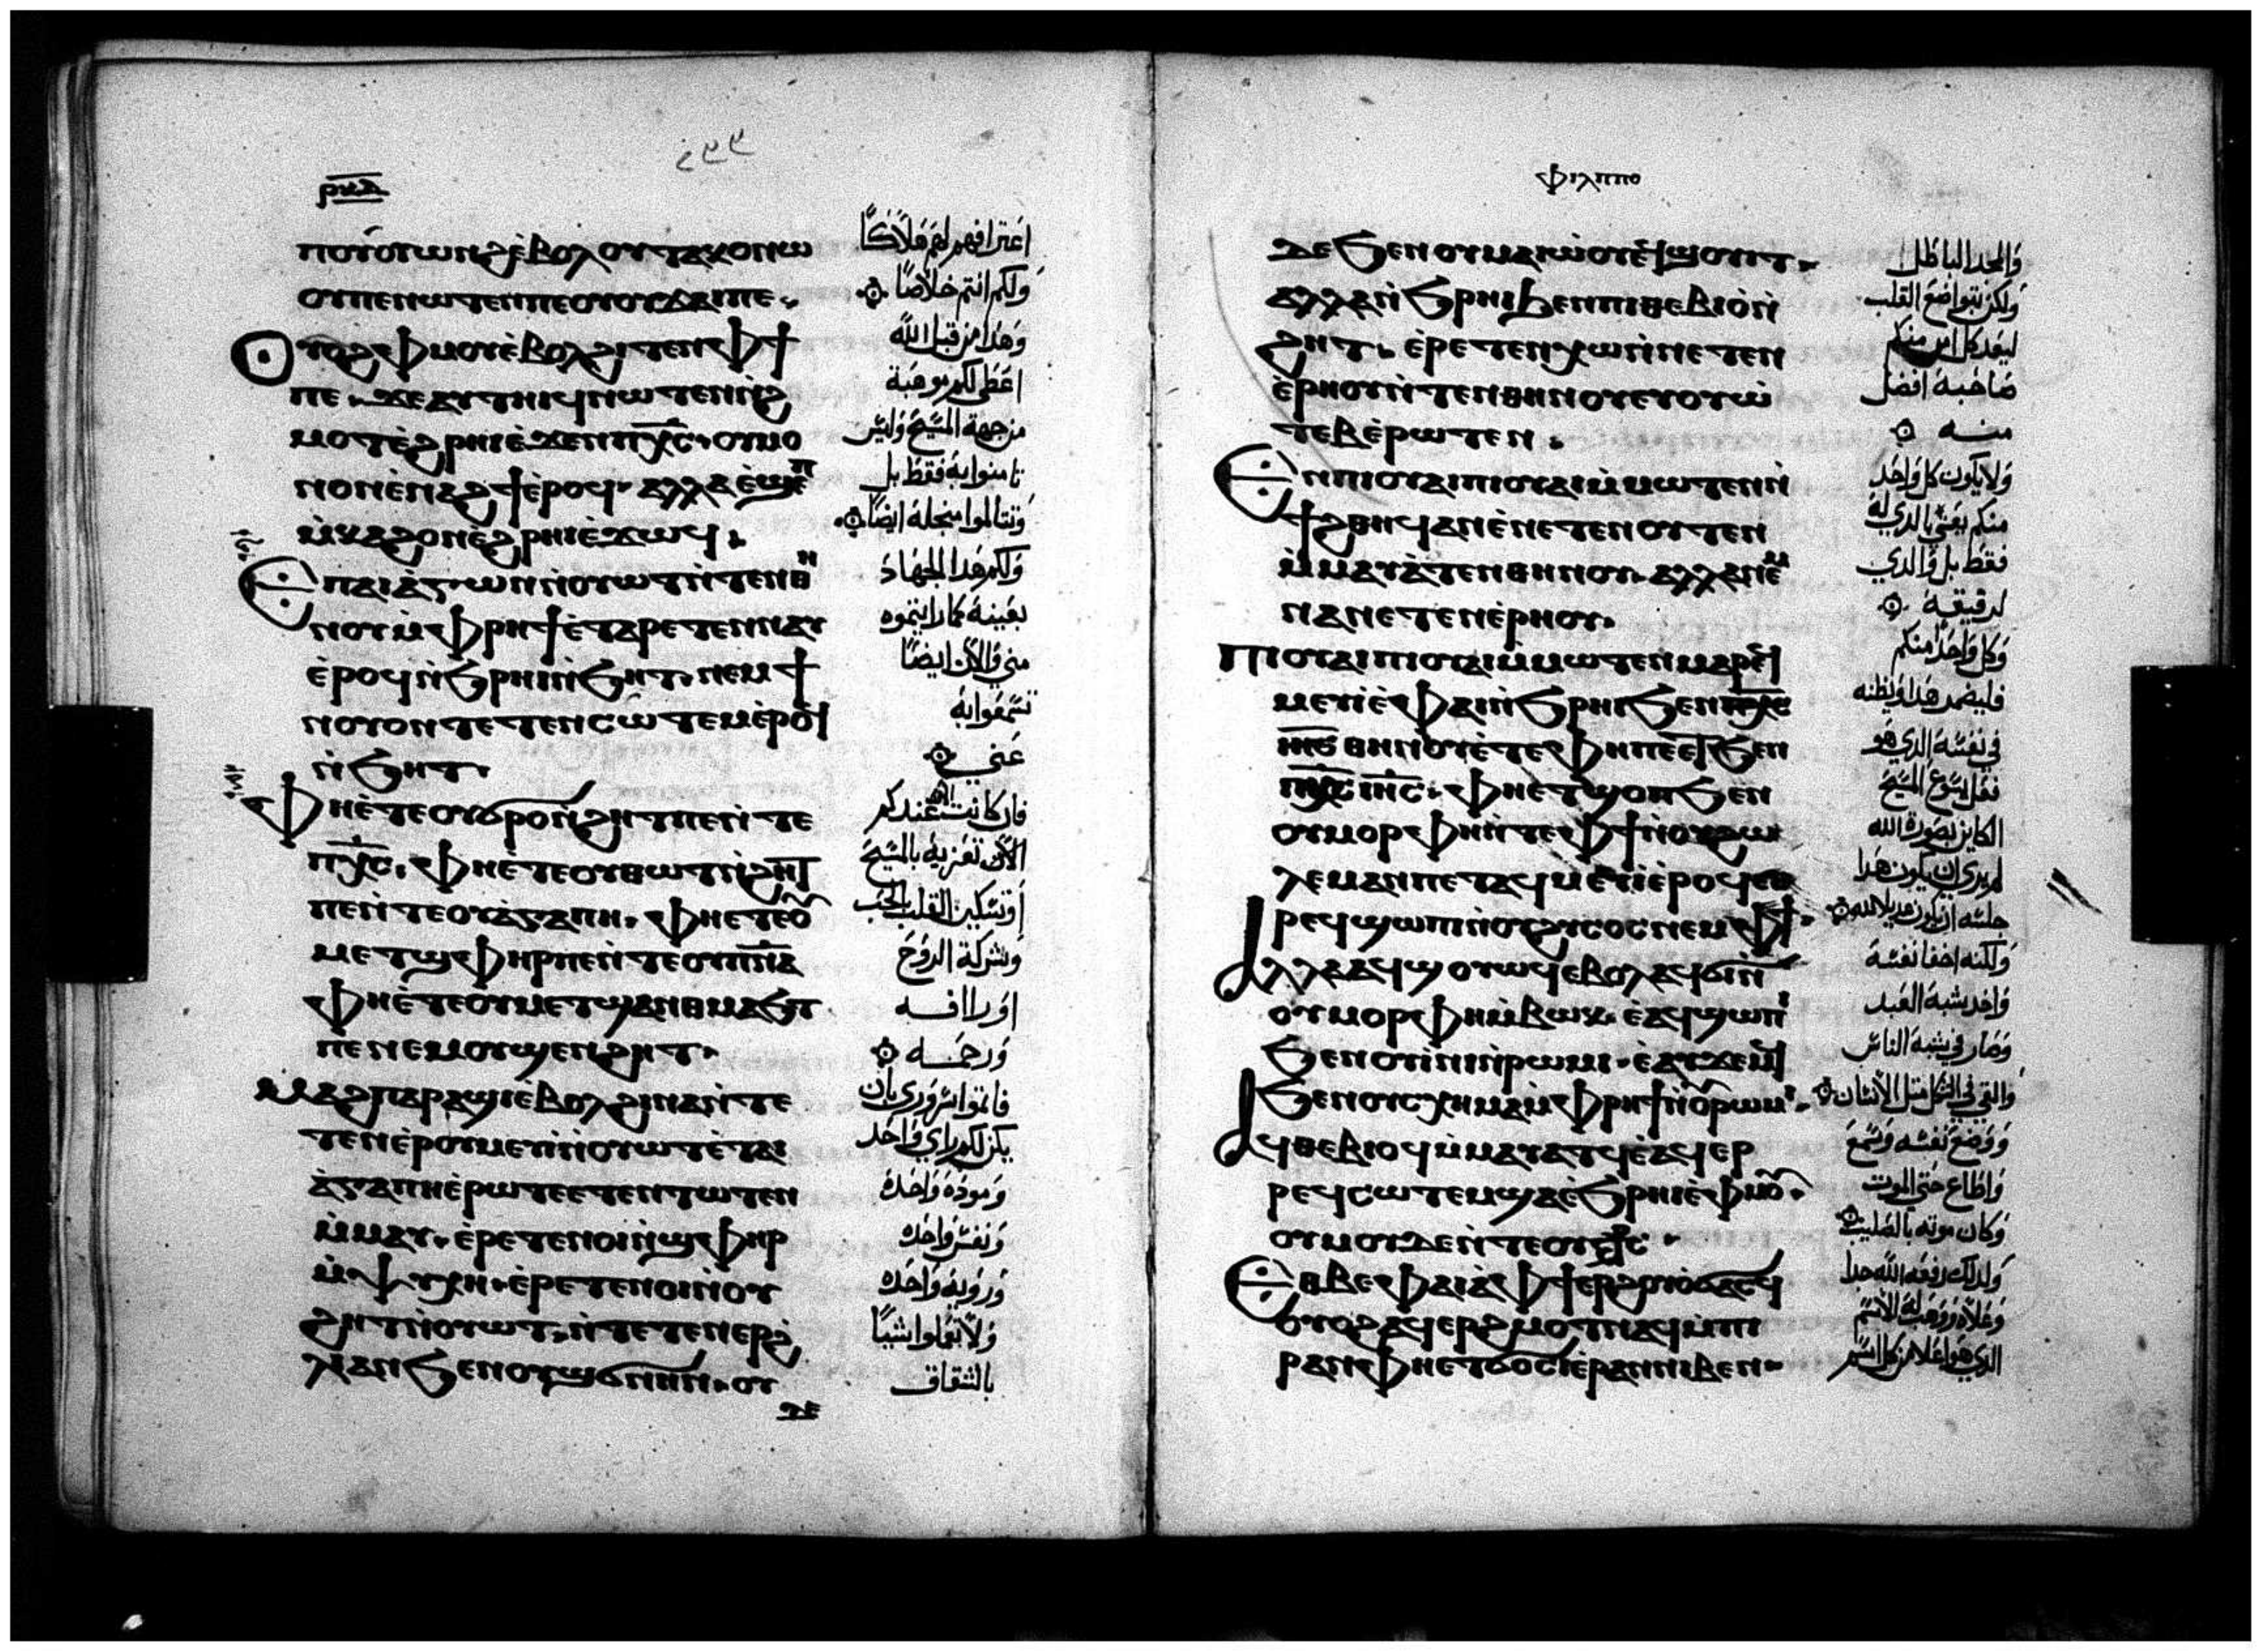 ⲣⲕⲇ
ⲡⲟⲩⲟⲩⲱⲛϩ ⲉ̀ⲃⲟⲗ ⲟⲩⲧⲁⲕⲟ ⲛⲱ
ⲟⲩ ⲡⲉ ⲛⲱⲧⲉⲛ ⲡⲉ ⲟⲩⲟⲩϫⲁⲓ ⲡⲉ.
ⲟⲩⲟϩ ⲫⲙⲟⲩ ⲉ̀ⲃⲟⲗϩⲓⲧⲉⲛ ⲫϯ
ⲡⲉ. ϫⲉ ⲁⲩⲧⲏⲓϥ ⲛⲱⲧⲉⲛ ⲛ̀ϩ
ⲙⲟⲧ ⲉ̀ϩⲣⲏⲓ ⲉ̀ϫⲉⲛ ⲡⲭ̅ⲥ̅. ⲟⲩⲙⲟ
ⲛⲟⲛ ⲉ̀ⲛⲁϩϯ ⲉ̀ⲣⲟϥ. ⲁⲗⲗⲁ ⲉ̀ϣⲉⲡ
ⲙ̀ⲕⲁϩ ⲟⲛ ⲉ̀ϩⲣⲏⲓ ⲉ̀ϫⲱϥ.
Ⲉⲡⲁⲓⲁ̀ⲅⲱⲛ ⲛ̀ⲟⲩⲱⲧ ⲛ̀ⲧⲉⲛⲑⲏ
ⲛⲟⲩ ⲙ̀ⲫⲣⲏϯ ⲉ̀ⲧⲁⲣⲉⲧⲉⲛⲛⲁⲩ
ⲉ̀ⲣⲟϥ ⲛ̀ϧⲣⲏⲓ ⲛ̀ϧⲏⲧ. ⲛⲉⲙ ϯ
ⲛⲟⲩ ⲟⲛ ⲧⲉⲧⲉⲛⲥⲱⲧⲉⲙ ⲉ̀ⲣⲟϥ
ⲛ̀ϧⲏⲧ.
Ⲫⲏⲉ̀ⲧⲉ ⲟⲩϭⲣⲟ ⲛ̀ϩⲏⲧ ⲡⲉ ⲛ̀ⲧⲉ
ⲡⲭ̅ⲥ̅. ⲫⲏⲉ̀ⲧⲉ ⲟⲩⲑⲱⲧ ⲛ̀ϩⲏⲧ
ⲡⲉ ⲛ̀ⲧⲉ ⲟⲩⲁ̀ⲅⲁⲡⲏ. ⲫⲏⲉⲧⲉ ⲟⲩ
ⲙⲉⲧϣⲫⲏⲣ ⲡⲉ ⲛ̀ⲧⲉ ⲟⲩⲡ̅ⲛ̅ⲁ̅
ⲫⲏⲉ̀ⲧⲉ ⲟⲩⲙⲉⲧϣⲁⲛⲑⲙⲁϧⲧ
ⲡⲉ ⲛⲉⲙ ⲟⲩϣⲉⲛϩⲏⲧ.
Ⲙⲁϩ ⲡⲁⲣⲁϣⲓ ⲉ̀ⲃⲟⲗ ϩⲓⲛⲁ ⲛ̀ⲧⲉ
ⲧⲉⲛⲉ̀ⲣ ⲟⲩⲙⲉⲩⲓ ⲛ̀ⲟⲩⲱⲧ ⲉ̀ⲧⲁⲓ
ⲁ̀ⲅⲁⲡⲏ ⲉ̀ⲣⲱⲧⲉ ⲉⲧⲉⲛⲧⲱⲧⲉⲛ
ⲙ̀ⲙⲁⲩ. ⲉ̀ⲣⲉⲧⲉⲛⲟⲓ ⲛ̀ϣⲫⲏⲣ
ⲙ̀ⲯⲩⲭⲏ. ⲉ̀ⲣⲉⲧⲉⲛⲟⲓ ⲛ̀ⲟⲩ
ϩⲏⲧ ⲛ̀ⲟⲩⲱⲧ. ⲛ̀ⲧⲉⲧⲉⲛⲉⲣϩ
ⲗⲓ ⲁⲛ ϧⲉⲛ ⲟⲩϣϭⲛⲏⲛ. ⲟⲩ
ϫⲉ
٢٣٣
اعترافهم لهم هلاكًا
ولكم انتم خلاصًا
وهذا من قبل الله
اعطى لكم موهبة
من جهة المسيح وليس
تامنوا به فقط بل
وتتالموا منجله ايضًا
ولكم هذا الجهاد
بعينه كما رايتموه
مني والان ايضًا
تسمعوا به
عني
فان كانت عندكم
الان تعزية بالمسيح
او تسكين القلب بالحب
وشركة الروح
او راافه
ورحمه
فاتموا سروري بان
يكن لكم راي واحد
ومودة واحدة
ونفس واحده
وروية واحده
ولا تعملوا شيًا
بالشقاق
ⲫⲓⲗⲡⲡⲟ
ϫⲉ ϧⲉⲛ ⲟⲩⲙⲁⲓⲱ̀ⲟⲩ ⲉϥϣⲟⲩⲓⲧ.
ⲁⲗⲗⲁ ⲛ̀ϧⲣⲏⲓ ϧⲉⲛ ⲡⲓⲑⲉⲃⲓⲟ̀ ⲛ̀
ϩⲏⲧ. ⲉ̀ⲣⲉⲧⲉⲛⲭⲱ ⲛ̀ⲛⲉⲧⲉⲛ
ⲉ̀ⲣⲏⲟⲩ ⲛ̀ⲧⲉⲛⲑⲏⲛⲟⲩ ⲉⲩⲟⲩⲱ̀
ⲧⲉⲃ ⲉ̀ⲣⲱⲧⲉⲛ.
Ⲉⲛⲡⲓⲟⲩⲁⲓ ⲡⲓⲟⲩⲁⲓ ⲙ̀ⲙⲱⲧⲉⲛ ⲛ̀
ϯϩⲑⲏϥ ⲁⲛ ⲉ̀ⲛⲉⲧⲉⲛⲟⲩⲧⲉⲛ
ⲙ̀ⲙⲁⲩⲁ̀ⲧⲉⲛⲑⲏⲛⲟⲩ. ⲁⲗⲗⲁ ⲛⲉⲙ
ⲛⲁ ⲛⲉⲧⲉⲛⲉ̀ⲣⲏⲟⲩ.
Ⲡⲓⲟⲩⲁⲓ ⲡⲓⲟⲩⲁⲓ ⲙ̀ⲙⲱⲧⲉⲛ ⲙⲁⲣⲉϥ
ⲙⲉⲩⲓ ⲉ̀ⲫⲁⲓ ⲛ̀ϧⲣⲏⲓ ϧⲉⲛ
ⲑⲏⲛⲟⲩ ⲉ̀ⲧⲉ ⲫⲏ ⲡⲉ ⲉϥϧⲉⲛ
ⲡⲭ̅ⲥ̅ ⲓⲏ̅ⲥ̅. ⲫⲏⲉⲧϣⲟⲡ ϧⲉⲛ
ⲟⲩⲙⲟⲣⲫⲏ ⲛ̀ⲧⲉ ⲫϯ ⲛ̀ⲟⲩϩⲱ
ⲗⲉⲙ ⲁⲛ ⲡⲉⲧⲁϥⲙⲉⲩⲓ ⲉ̀ⲣⲟϥ ⲉⲑ
ⲣⲉϥϣⲱⲡⲓ ⲛ̀ⲟⲩϩⲩⲥⲟⲥ ⲛⲉⲙ ⲫϯ.
Ⲁⲗⲗⲁ ⲁϥϣⲟⲩⲱϥ ⲉⲃⲟⲗ ⲁϥϭⲓ ⲛ̀
ⲟⲩⲙⲟⲣⲫⲏ ⲙ̀ⲃⲱⲕ. ⲉ̀ⲁϥϣⲱⲡⲓ
ϧⲉⲛ ⲟⲩⲓ̀ⲛⲓ ⲛ̀ⲣⲱⲙⲓ. ⲉ̀ⲁⲩϫⲉⲙϥ
ϧⲉⲛ ⲟⲩⲥⲭⲏⲙⲁ ⲙ̀ⲫⲣⲏϯ ⲛ̀ⲟⲩⲣⲱⲙⲓ.
Ⲁϥⲑⲉⲃⲓⲟϥ ⲙ̀ⲙⲁⲩⲁⲧϥ ⲉ̀ⲁϥⲉⲣ
ⲣⲉϥⲥⲱⲧⲉⲙ ϣⲁ ⲉ̀ϧⲣⲏⲓ ⲉ̀ⲫⲙⲟⲩ.
ⲟⲩⲙⲟⲩ ⲇⲉ ⲛ̀ⲧⲉ ⲟⲩ
Ⲉⲑⲃⲉⲫⲁⲓ ⲁ̀ ⲫϯ ⲉⲣϩⲟⲩⲟ̀ ϭⲁⲥϥ
ⲟⲩⲟϩ ⲁϥⲉⲣϩⲙⲟⲧ ⲛⲁϥ ⲙ̀ⲡⲓ
ⲣⲁⲛ ⲫⲏⲉⲧϭⲟⲥⲓ ⲉ̀ⲣⲁⲛ ⲛⲓⲃⲉⲛ.
والمجد الباطل
ولكن بتواضع القلب
ليعد كل امر منكم
صاحبه افضل
منه
ولا يكون كل واحد
منكم يعتني بالذي له
فقط بل والذي
لرفيقه
وكل واحدا منكم
فليضمر هذا ويظنه
في نفسه الذي هو
فعل يسوع المسيح
الكاين بصورة الله
لم يرى ان يكون هذا
خلسه ان يكون عديلا لله
ولكنه اخفا نفسه
واخد شبه العبد
وصار في شبه الناس
والقي في الشكل مثل الانسان
ووضع نفسه وسمع
واطاع حتى الموت
وكان موته بالصليب
ولذلك رفعه الله جدا
وعلاه ووهب له الاسم
الذي هو اعلا من كل اسم